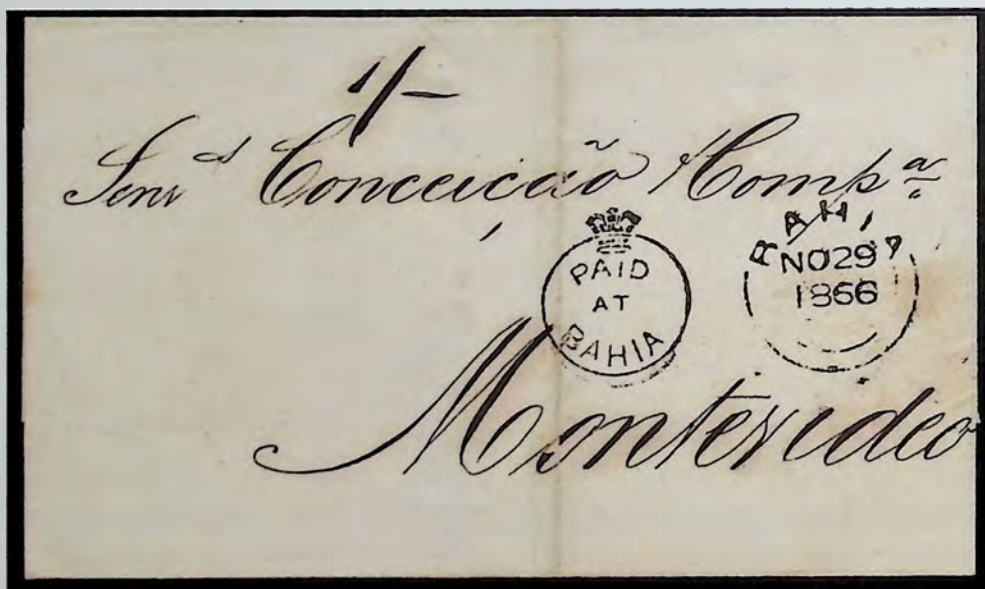 1/-
Senrs Conceição & Compa
PAID
AT
BAHIA
BAHIA
NO 29
1866
Montevideo